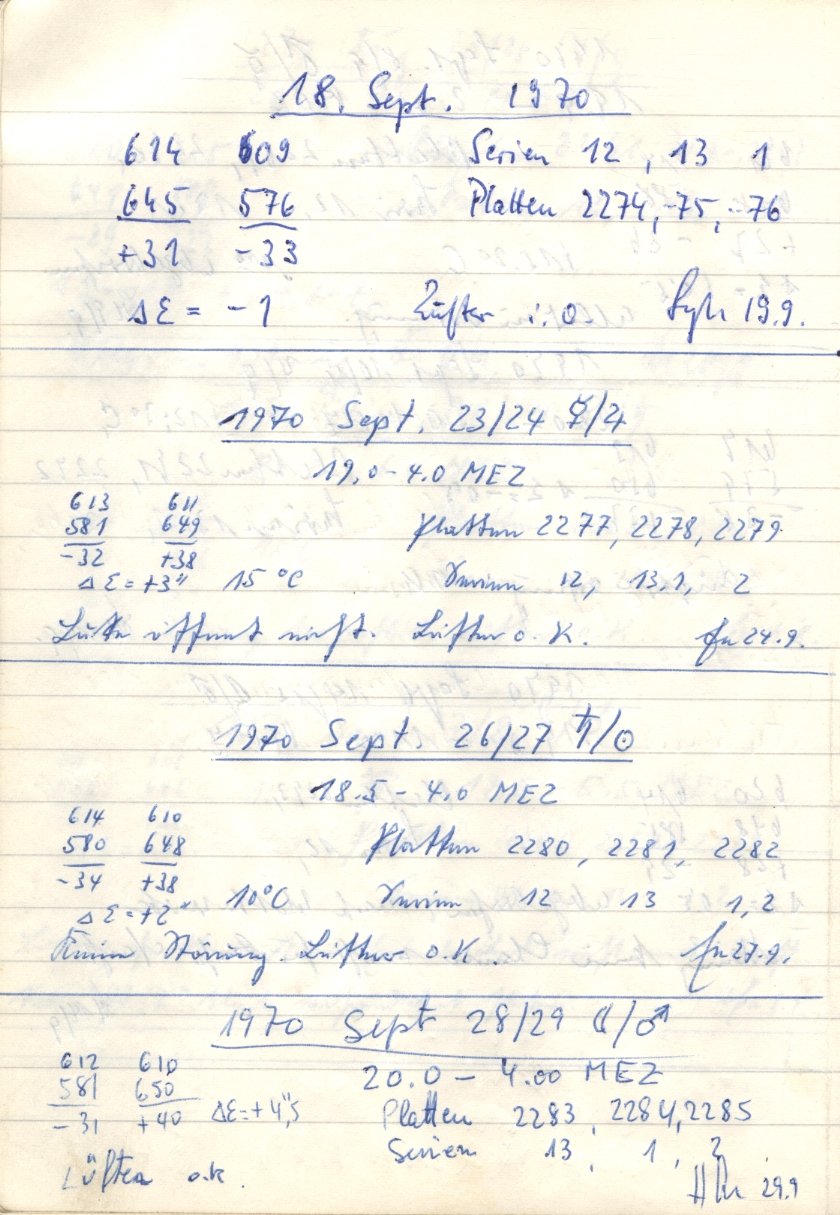 18. Sept. 1970
614 609 Serien 12, 13 1
645 576 Platten 2274, -75, -76
+31 -33
ΔƐ = -1 Lüfter i. O 19.9.
1970 Sept. 23/24 ☿/♃
19.0-4.0 MEZ
613 611
581 649 Platten 2277, 2278, 2279
-32 +38
ΔƐ = +3" 15 °C Serien 12, 13.1, 2
Luke öffnet nicht. Lüfter o. K. 24.9.
1970 Sept. 26/27 ♄/☉
18.5-4.0 MEZ
614 610
580 648 Platten 2280, 2281, 2282
-34 +38
ΔƐ = +2" 10°C Serien 12 13 1,2
Keine Störung. Lüfter o.K. 27.9.
1970 Sept 28/29 ☾/♂
612 610 20.0 - 4.00 MEZ
581 650
-31 +40 ΔƐ = +4",5 Platten 2283, 2284, 2285
Serien 13, 1, 2
Lüfter o.k. 29.9